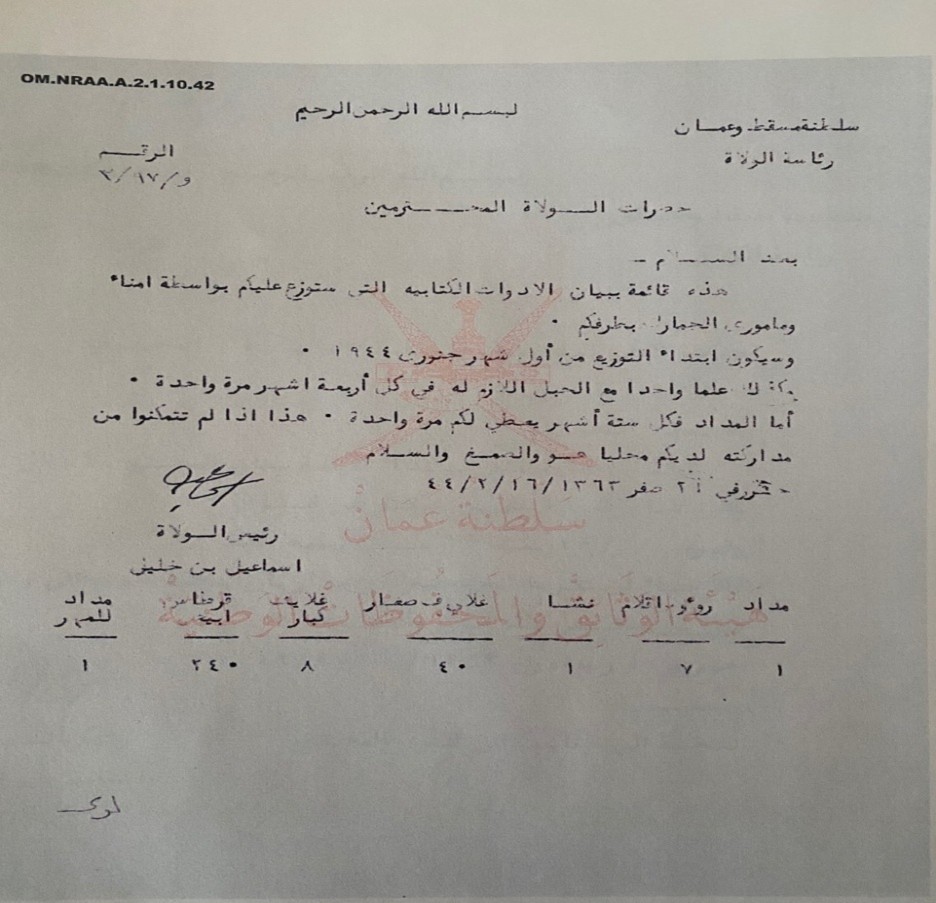 OM.NRAA.A.2.1.10.42
بسم الله الرحمن الرحيم
سلطنة مسقط وعمان
رئاسة الولاة
الرقم
و/٩٧/٣
حضرات الولاة المحترمين
بعد السلام -
هذه قائمة ببيان الادوات الكتابيه التى ستوزع عليكم بواسطة امناء
وماموري الجمارك بطرفكم ٠
وسيكون ابتداء التوزيع من أول شهر جنورى ١٩٤٤ ٠
علما واحدا مع الحبل اللازم له في كل أربعة اشهر مرة واحدة ٠
أما المداد فكل ستة أشهر يعطي لكم مرة واحدة ٠ هذا اذا لم تتمكنوا من
مداركته لديكم محليا هو والصمغ والسلام
صفر ١٣٦٣/ ٤٤/٢/١٦
رئيس الولاة
اسماعيل بن خليل
مداد روؤس اقلام نشا غلايف صغار غلايف كبار قرطاس ابيض مداد للمهر
١ ٧ ١ ٤٠ ٨ ٢٤٠ ١
سلطنة عمان
هيئة الوثائق والمحفوظات الوطنية